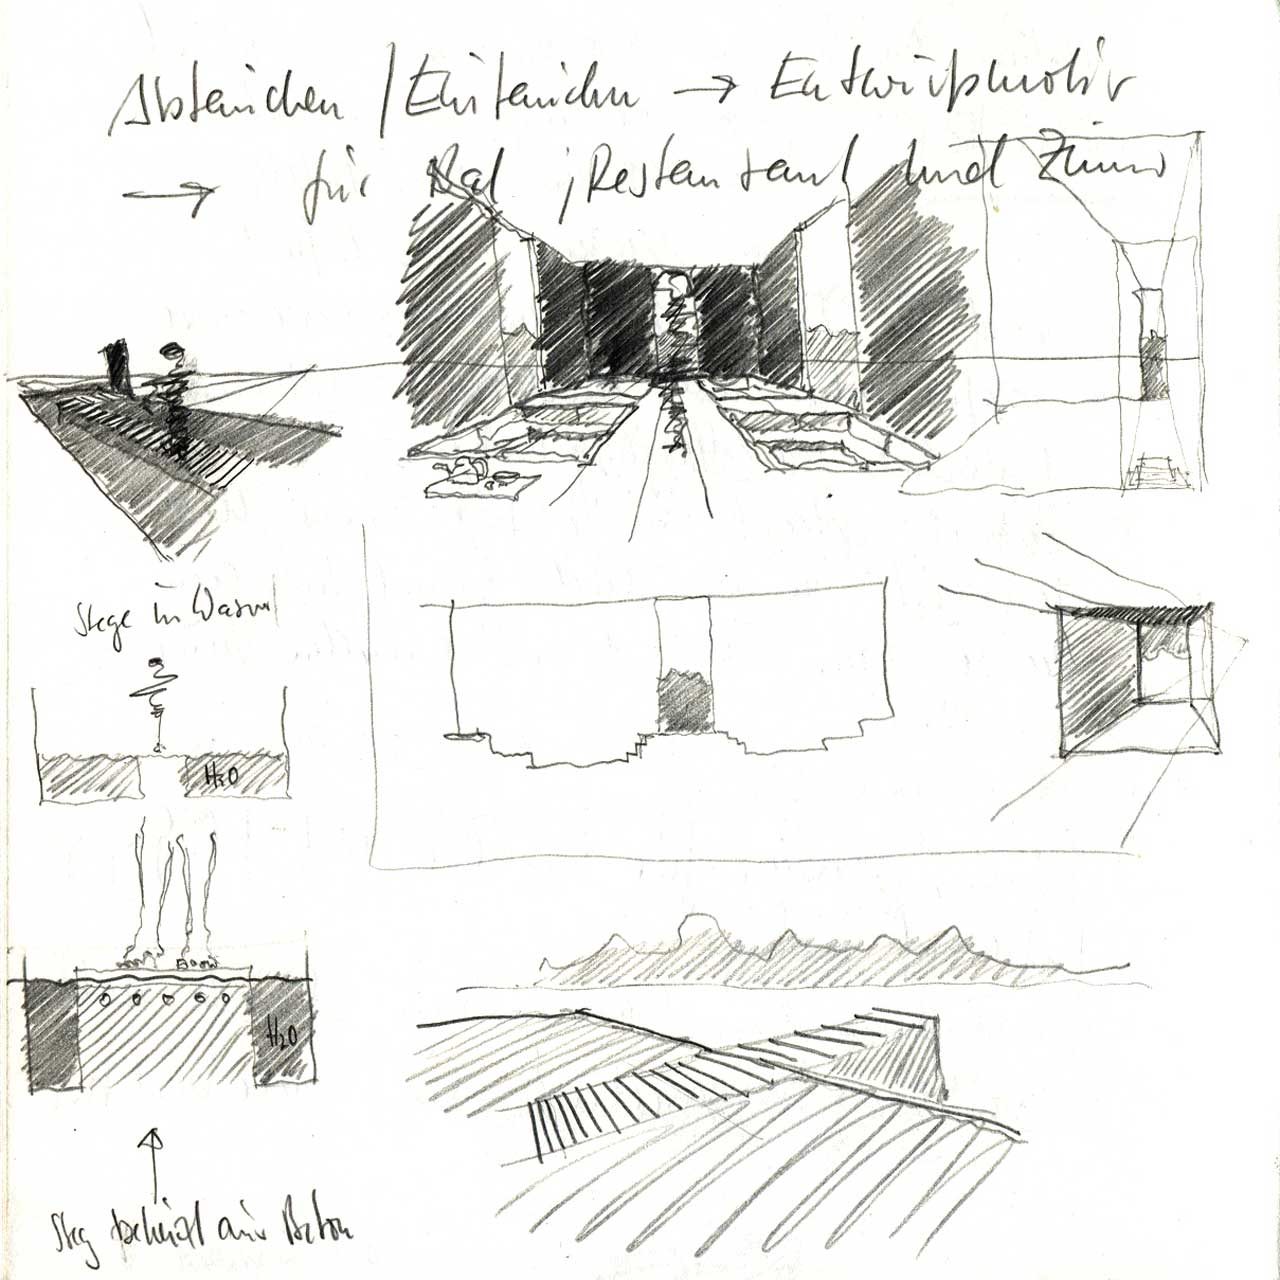 Abtauchen / Eintauchen → Entwurfsmotiv
→ für Bad, Restaurant und Zimmer
Stege im Wasser
H₂O
H₂O
Steg beheizt aus Beton